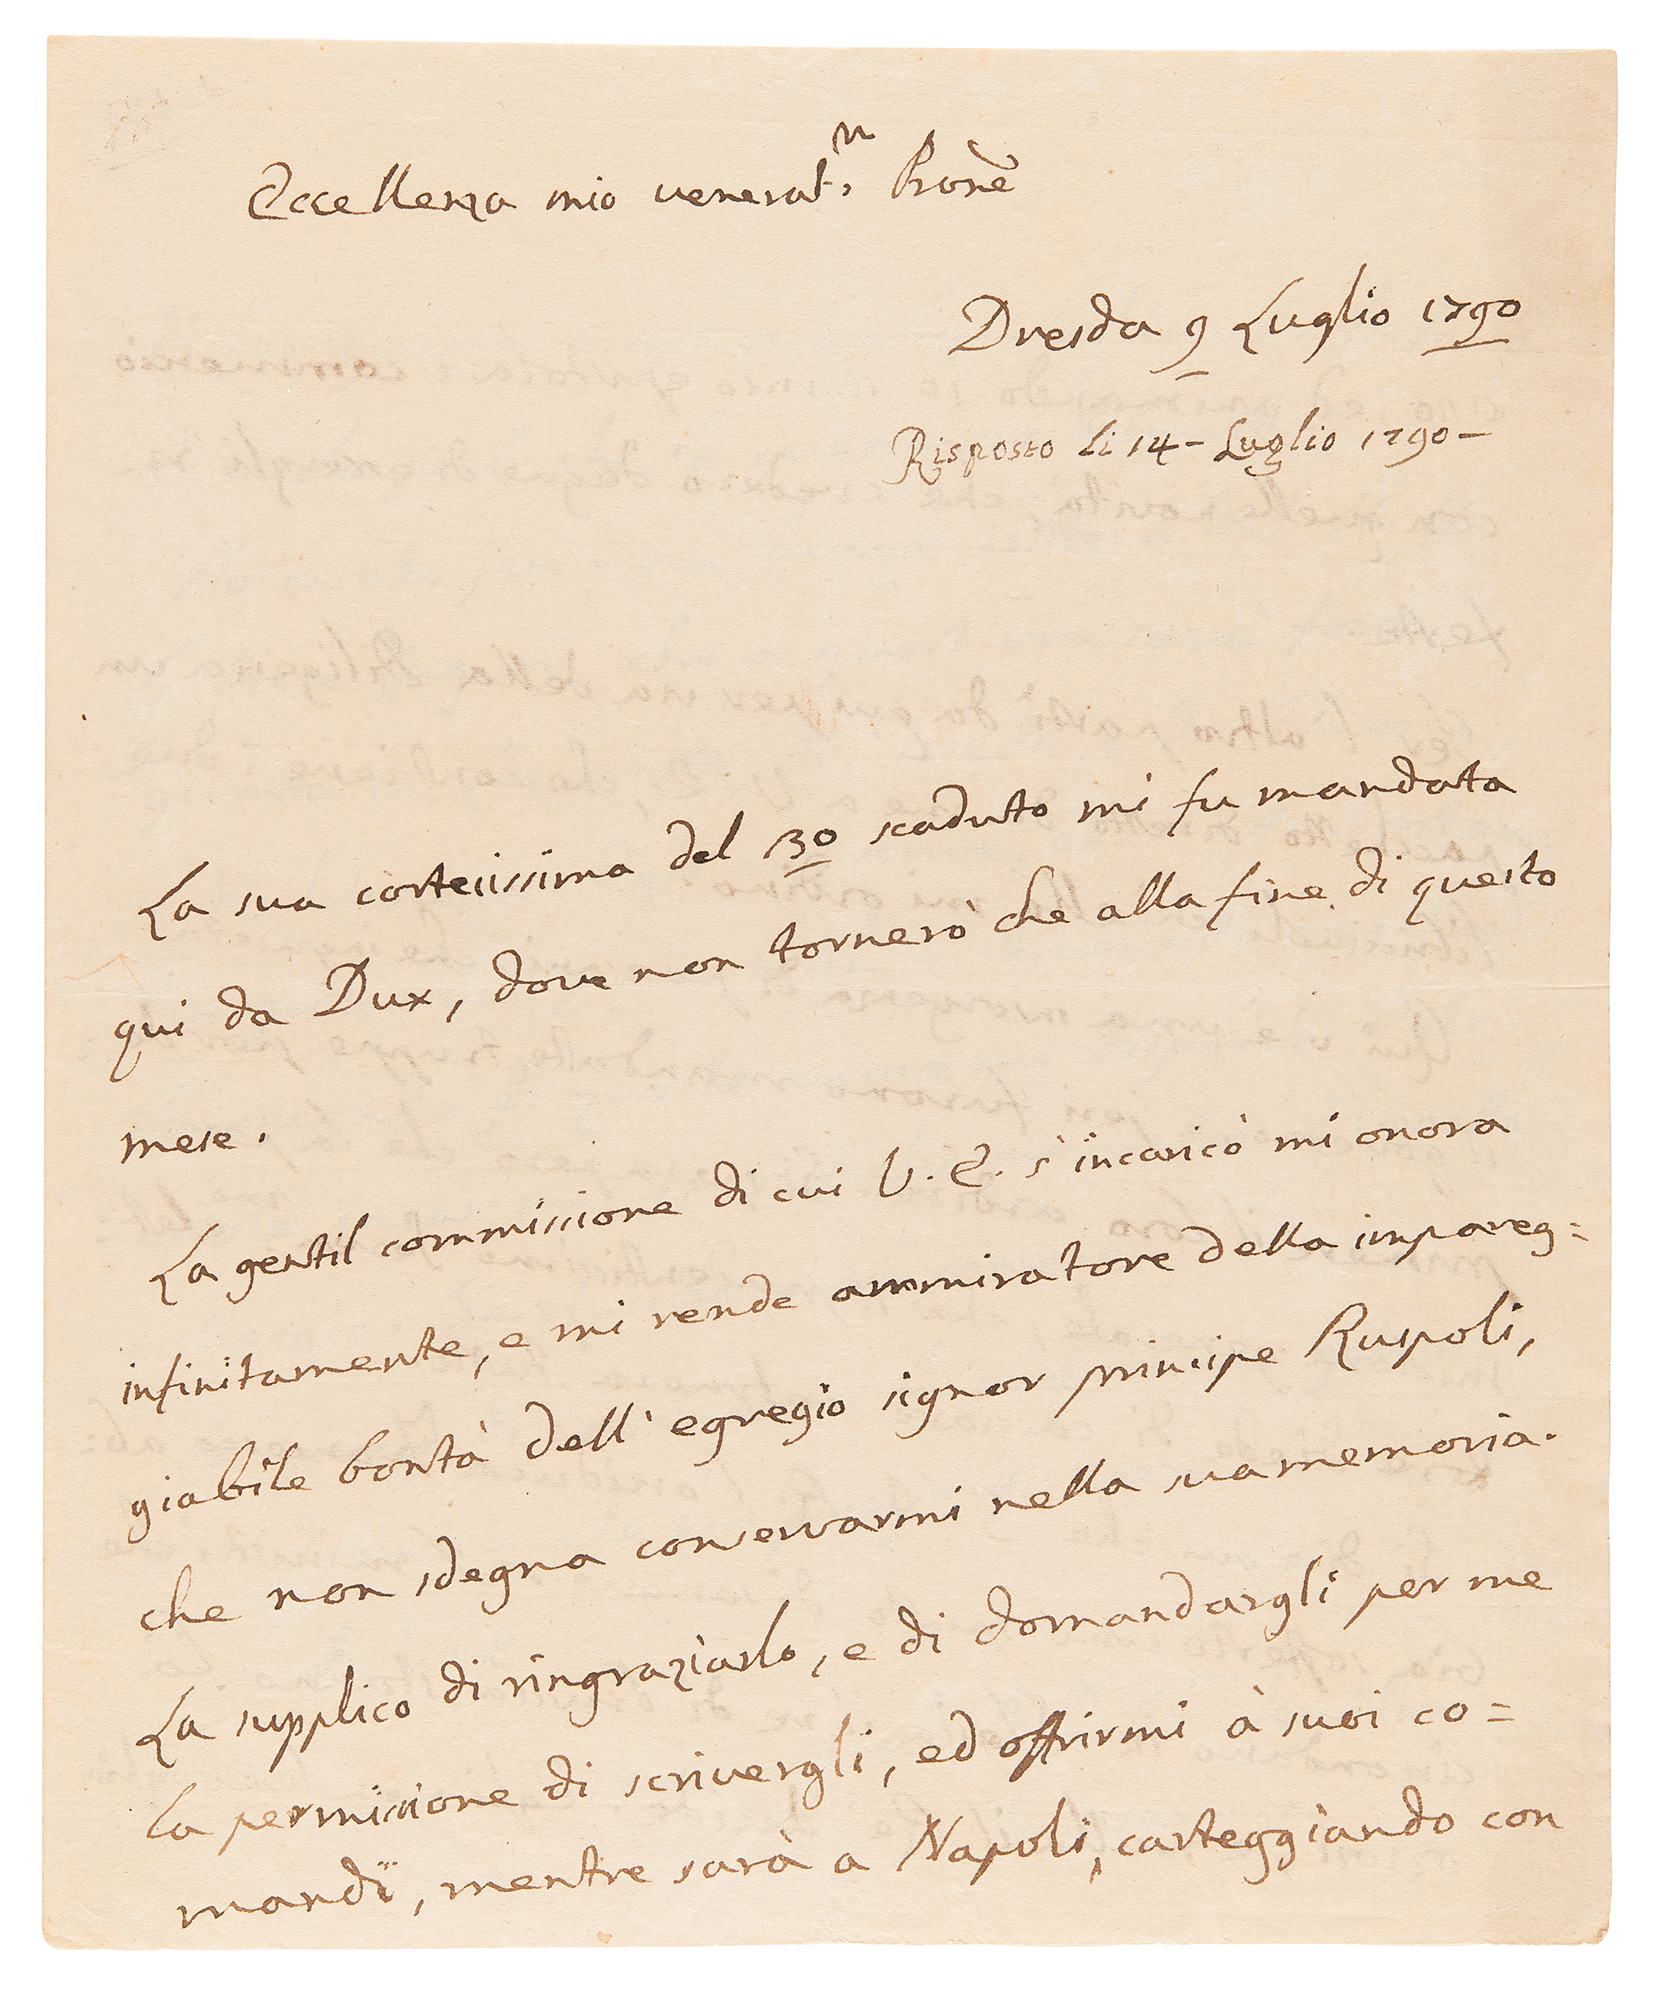 Eccellenza mio venerat.n Pronē
Dresda 9 Luglio 1790
Risposto li 14 – Luglio 1790 –
La sua cortesissima del 30 scaduto mi fu mandata
qui da Dux, dove non tornerò che alla fine di questo
mese.
La gentil commissione di cui V. E. s'incaricò mi onora
infinitamente, e mi rende ammiratore della impareg=
giabile bontà dell' egregio signor principe Ruspoli,
che non sdegna conservarmi nella sua memoria.
La supplico di ringraziarlo, e di domandargli per me
la permissione di scrivergli, ed offrirmi à suoi co=
mandï, mentre sarà a Napoli, carteggiando con